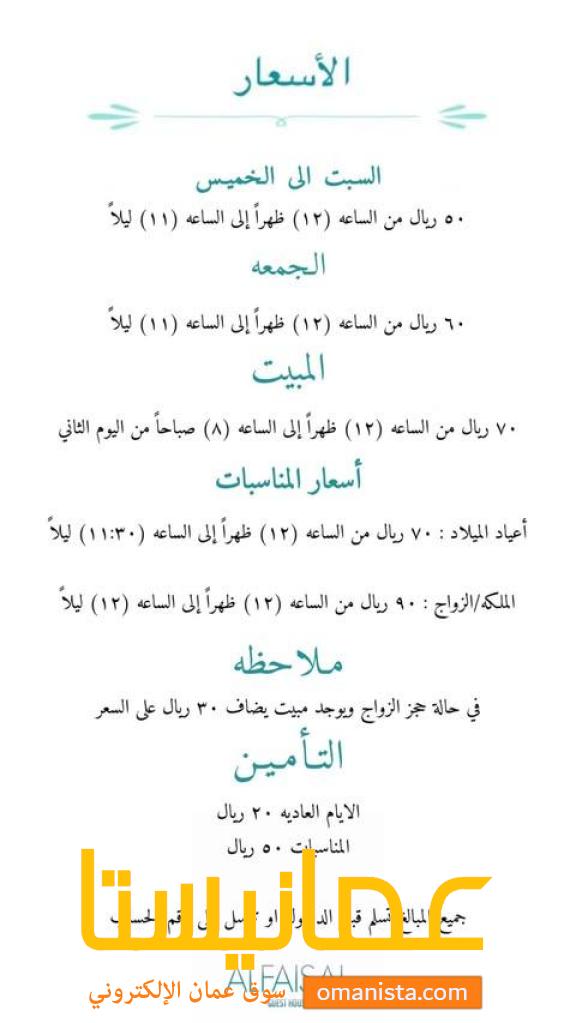 الأسعار
السبت الى الخميس
٥٠ ريال من الساعه (١٢) ظهراً إلى الساعه (١١) ليلاً
الجمعه
٦٠ ريال من الساعه (١٢) ظهراً إلى الساعه (١١) ليلاً
المبيت
٧٠ ريال من الساعه (١٢) ظهراً إلى الساعه (٨) صباحاً من اليوم الثاني
أسعار المناسبات
أعياد الميلاد : ٧٠ ريال من الساعه (١٢) ظهراً إلى الساعه (١١:٣٠) ليلاً
الملكه/الزواج : ٩٠ ريال من الساعه (١٢) ظهراً إلى الساعه (١٢) ليلاً
ملاحظه
في حالة حجز الزواج ويوجد مبيت يضاف ٣٠ ريال على السعر
التأمين
الايام العاديه ٢٠ ريال
المناسبات ٥٠ ريال
عمانيستا
جميع المبالغ تسلم او
ALFAISAL
سوق عمان الإلكتروني
omanista.com